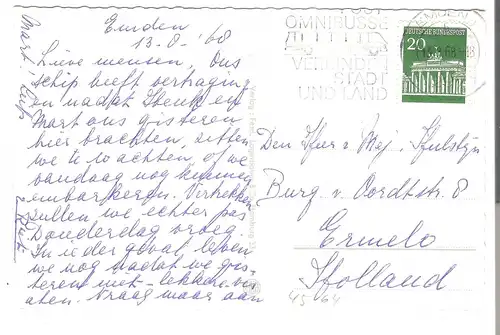 Emden
13-8-'68
Lieve mensen, Ons
schip heeft vertraging
en nadat Henk en
Mart ons gisteren
hier brachten, zitten
we te wachten, of we
vandaag nog kunnen
embarkeren. Vertrekken
zullen we echter pas
Donderdag vroeg.
In ieder geval leven
we nog nadat we gis-
teren niet lekker
aten. Vraag maar aan
Mart!
POST
OMNIBUSSE
VERBINDEN
STADT
UND LAND
EMDEN
DEUTSCHE BUNDESPOST
20
Den Heer en Mej.
Burg v. Oordtstr. 8
Ermelo
Holland
45-64